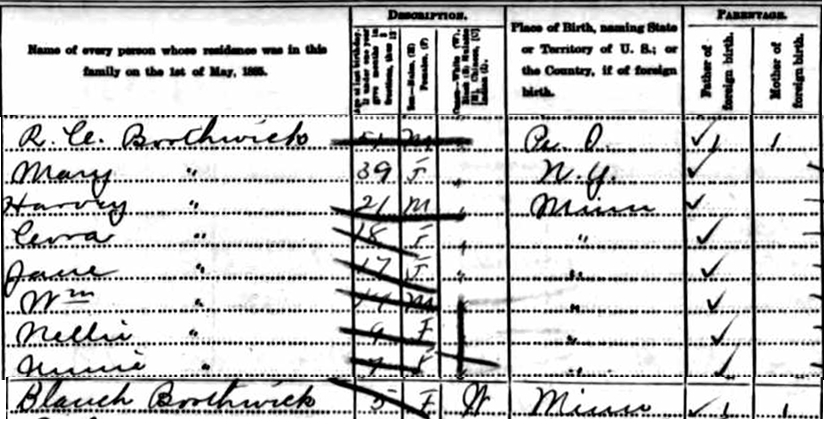 DESCRIPTION.
PARENTAGE.
Name of every person whose residence was in this family on the 1st of May, 1885.
Age at last birthday. If under one year give months in fractions, thus
Sex—Males, (M) Females, (F)
Color—White (W), Black (B) Mulatto (M), Chinese, (C) Indian (I).
Place of Birth, naming State or Territory of U. S.; or the Country, if of foreign birth.
Father of foreign birth.
Mother of foreign birth.
Borthwick M ✓ 1 1
Mary " 39 F " N.Y. ✓
Harvey " 21 M Minn ✓
" 18 F " ✓
Jane " 17 F " " ✓
Wm " M " ✓
Nellie " 9 F " ✓
" 7 F " ✓
Blanch Borthwick 5 F W Minn ✓ 1 1